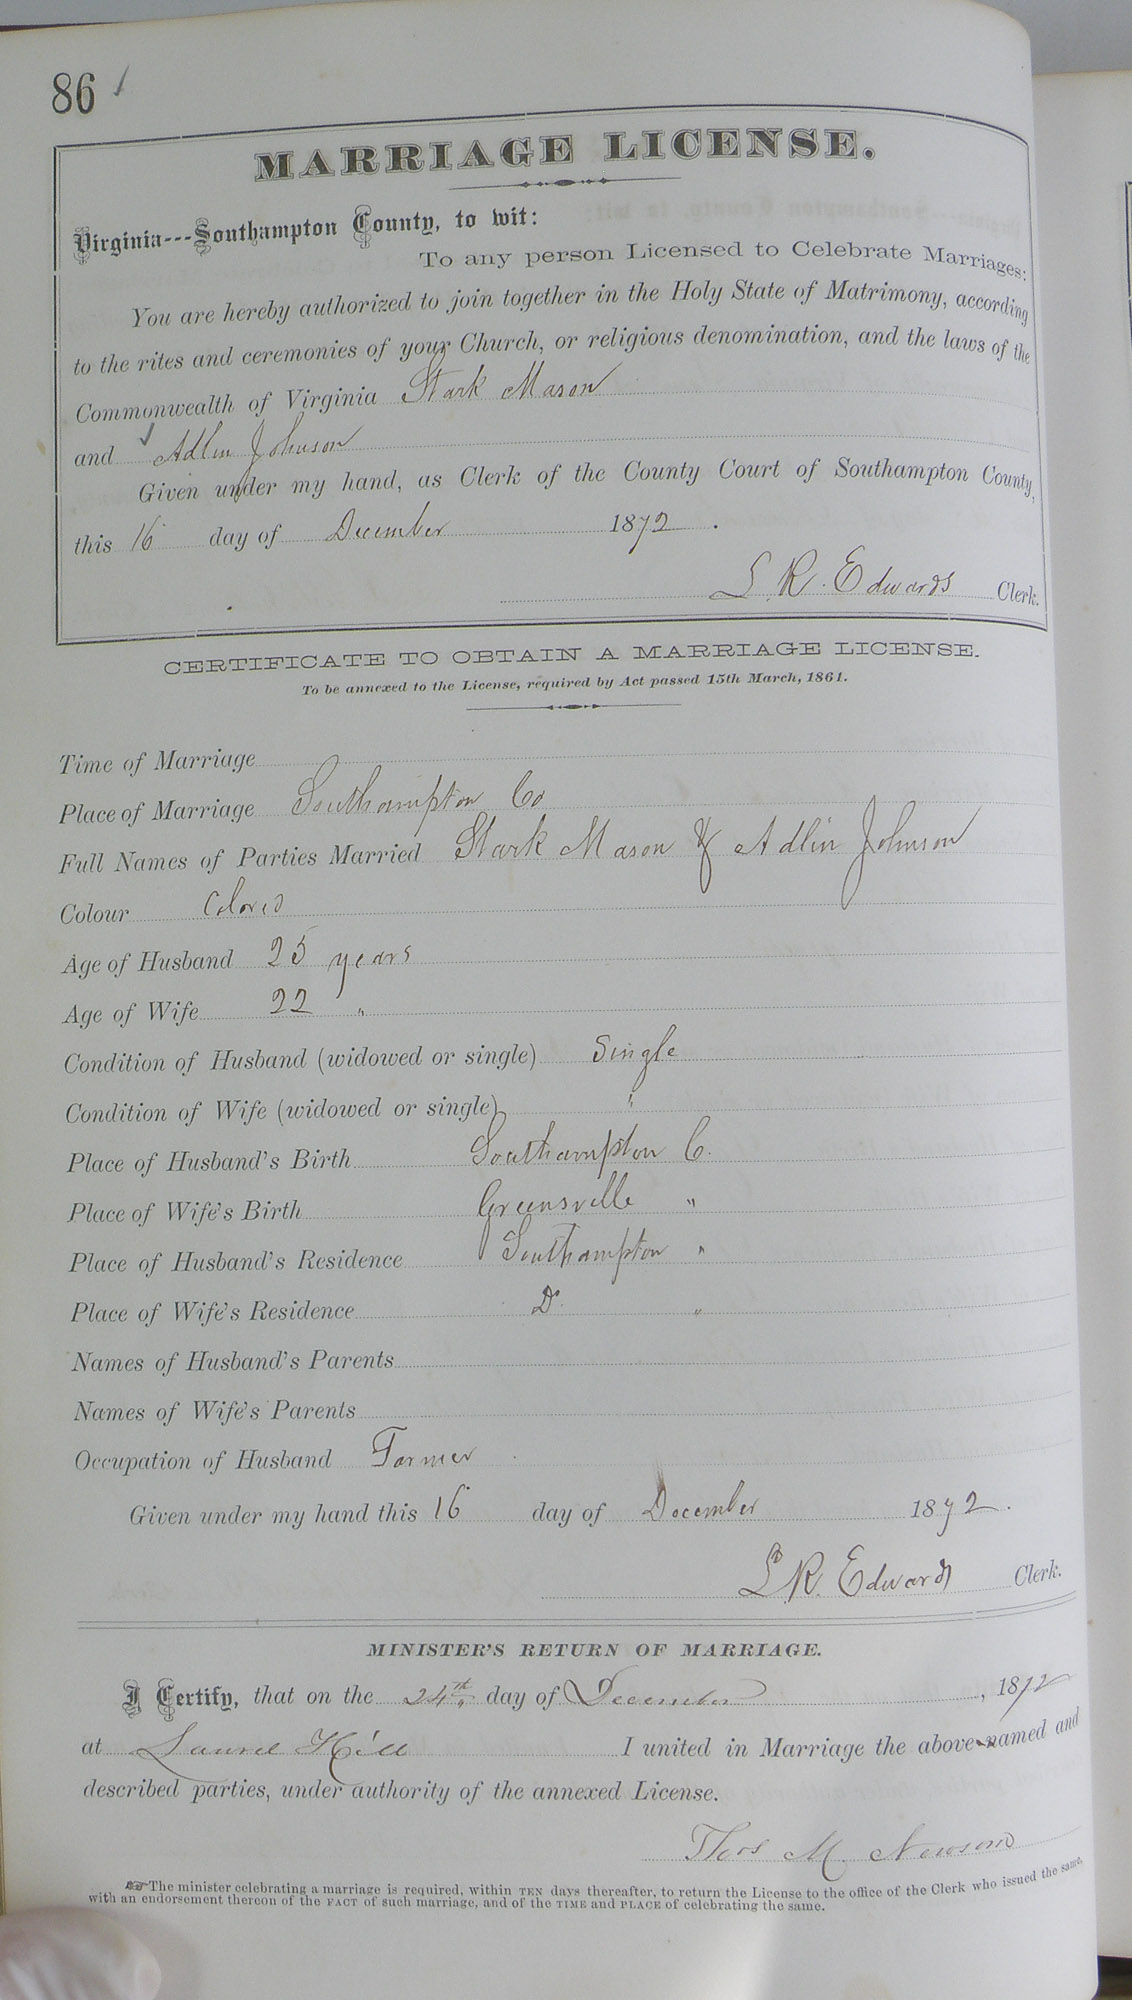 86
MARRIAGE LICENSE.
Virginia---Southampton County, to wit:
To any person Licensed to Celebrate Marriages:
You are hereby authorized to join together in the Holy State of Matrimony, according
to the rites and ceremonies of your Church, or religious denomination, and the laws of the
Commonwealth of Virginia Stark Mason
and Adlin Johnson
Given under my hand, as Clerk of the County Court of Southampton County,
this 16 day of December 1872.
L R. Edwards Clerk.
CERTIFICATE TO OBTAIN A MARRIAGE LICENSE.
To be annexed to the License, required by Act passed 15th March, 1861.
Time of Marriage
Place of Marriage Southampton Co
Full Names of Parties Married Stark Mason & Adlin Johnson
Colour Colored
Age of Husband 25 years
Age of Wife 22 "
Condition of Husband (widowed or single) Single
Condition of Wife (widowed or single) "
Place of Husband's Birth Southampton C.
Place of Wife's Birth Greensville "
Place of Husband's Residence Southampton "
Place of Wife's Residence Do "
Names of Husband's Parents
Names of Wife's Parents
Occupation of Husband Farmer
Given under my hand this 16 day of December 1872.
L R. Edwards Clerk.
MINISTER'S RETURN OF MARRIAGE.
I Certify, that on the 24th day of December, 1872
at Laurel Hill I united in Marriage the above-named and
described parties, under authority of the annexed License.
Thos M. Newsom
☞The minister celebrating a marriage is required, within TEN days thereafter, to return the License to the office of the Clerk who issued the same,
with an endorsement thereon of the FACT of such marriage, and of the TIME and PLACE of celebrating the same.